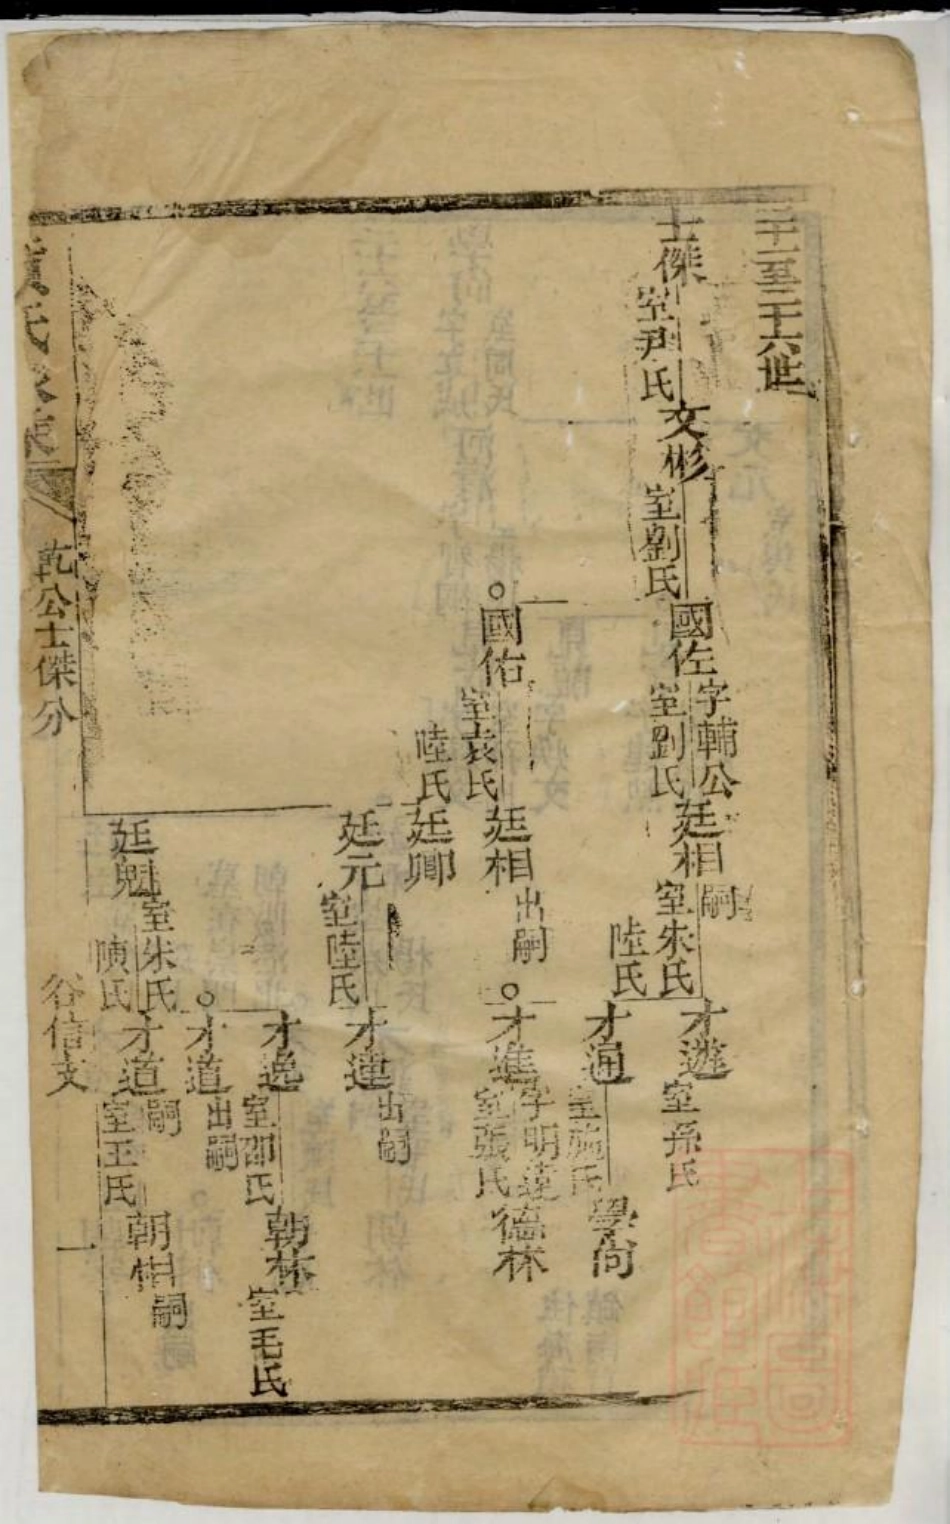 三十一至三十六世
士傑
室尹氏
文彬
室劉氏
國佐
字輔公
室劉氏
廷相
嗣
室朱氏
陸氏
才遊
室孫氏
才通
室施氏
學尚
才進
字明達
室張氏
德林
國佑
室袁氏
陸氏
廷相
出嗣
廷卿
廷元
室陸氏
才達
出嗣
才逸
室邵氏
朝林
室毛氏
才道
出嗣
廷魁
室朱氏
陳氏
才道
嗣
室王氏
朝相
嗣
氏
乾公士傑分
谷信支
一